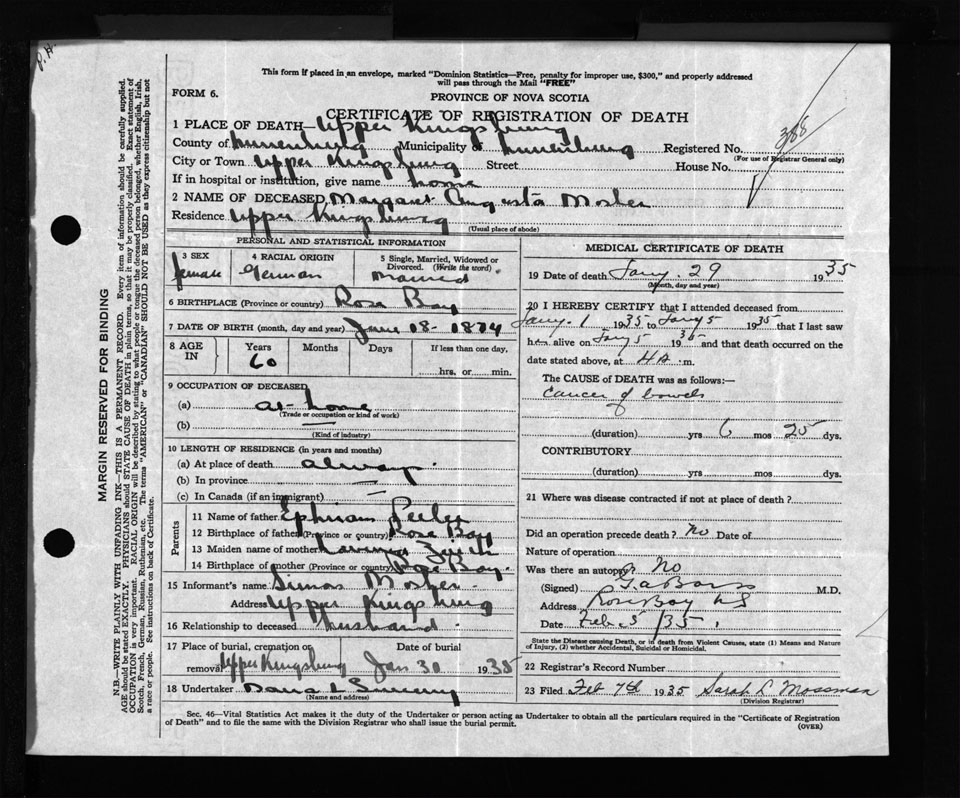 P.H.
This form if placed in an envelope, marked "Dominion Statistics—Free, penalty for improper use, $300," and properly addressed
will pass through the Mail "FREE"
FORM 6.
PROVINCE OF NOVA SCOTIA
CERTIFICATE OF REGISTRATION OF DEATH
388
1 PLACE OF DEATH— Upper Kingsburg
County of Lunenburg Municipality of Lunenburg Registered No.
(For use of Registrar General only)
City or Town Upper Kingsburg Street House No.
If in hospital or institution, give name home
2 NAME OF DECEASED Margaret Augusta Mosher
Residence Upper Kingsburg
(Usual place of abode)
PERSONAL AND STATISTICAL INFORMATION
3 SEX female
4 RACIAL ORIGIN German
5 Single, Married, Widowed or Divorced. (Write the word) Married
6 BIRTHPLACE (Province or country) Rose Bay
7 DATE OF BIRTH (month, day and year) June 18- 1874
8 AGE IN Years 60 Months Days If less than one day, hrs. or min.
9 OCCUPATION OF DECEASED
(a) at home
(Trade or occupation or kind of work)
(b) —
(Kind of industry)
10 LENGTH OF RESIDENCE (in years and months)
(a) At place of death always.
(b) In province —
(c) In Canada (if an immigrant) —
Parents
11 Name of father Ephriam
12 Birthplace of father (Province or country) Rose Bay
13 Maiden name of mother Lavinia
14 Birthplace of mother (Province or country) Rose Bay.
15 Informant's name Simon Mosher
Address Upper Kingsburg
16 Relationship to deceased Husband.
17 Place of burial, cremation or removal Upper Kingsburg Date of burial Jan 30 1935
18 Undertaker
(Name and address)
MEDICAL CERTIFICATE OF DEATH
19 Date of death Jany. 29 1935
(Month, day and year)
20 I HEREBY CERTIFY that I attended deceased from
Jany. 1 1935 to Jany 5 1935 that I last saw
her alive on Jany 5 1935 and that death occurred on the
date stated above, at 4 A. m.
The CAUSE OF DEATH was as follows:—
Cancer of bowels
(duration) yrs 6 mos 25 dys.
CONTRIBUTORY
(duration) yrs mos dys.
21 Where was disease contracted if not at place of death?
Did an operation precede death? No Date of
Nature of operation
Was there an autopsy? No
(Signed) M.D.
Address Rose Bay NS
Date Feb 5 /35
State the Disease causing Death, or in death from Violent Causes, state (1) Means and Nature
of Injury, (2) whether Accidental, Suicidal or Homicidal.
22 Registrar's Record Number
23 Filed Feb 7th 1935 Sarah D Mossman
(Division Registrar)
Sec. 46—Vital Statistics Act makes it the duty of the Undertaker or person acting as Undertaker to obtain all the particulars required in the "Certificate of Registration
of Death" and to file the same with the Division Registrar who shall issue the burial permit.
(OVER)
MARGIN RESERVED FOR BINDING
N.B.—WRITE PLAINLY WITH UNFADING INK—THIS IS A PERMANENT RECORD. Every item of information should be carefully supplied.
AGE should be stated EXACTLY. PHYSICIANS should STATE CAUSE OF DEATH in plain terms, so that it may be properly classified. Exact statement of
OCCUPATION is very important. RACIAL ORIGIN will be described by stating to what people or tongue the deceased person belonged, whether English, Irish,
Scotch, French, German, Russian, Ruthenian, etc. The terms "AMERICAN" or "CANADIAN" SHOULD NOT BE USED as they express citizenship but not
a race or people. See instructions on back of Certificate.